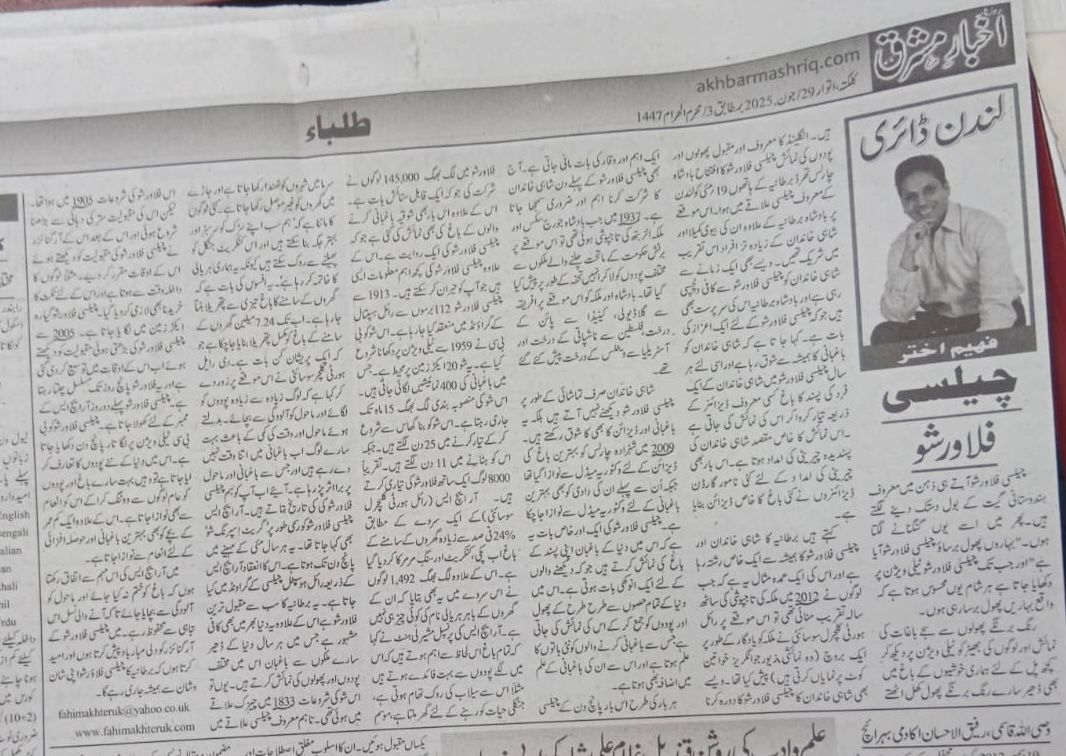 روزنامہ
اخبار مشرق
akhbarmashriq.com
کلکتہ، اتوار /29 جون، 2025 بمطابق /3 محرم الحرام 1447
طلباء
لندن ڈائری
فہیم اختر
چیلسی
فلاور شو
چیلسی فلاور شو آتے ہی ذہن میں معروف
ہندوستانی گیت کے بول دستک دینے لگتے
ہیں۔ پھر میں اسے یوں گنگنانے لگتا
ہوں۔ "بہاروں پھول برساؤ چیلسی فلاور شو آیا
ہے" اور جب تک چیلسی فلاور شو ٹیلی ویژن پر
دکھایا جاتا ہے ہر شام یوں محسوس ہوتا ہے کہ
واقع بہاریں پھول برسا رہی ہوں۔
رنگ برنگے پھولوں سے سجے باغات کی
نمائش اور لوگوں کی بھیڑ کو ٹیلی ویژن پر دیکھ کر
کچھ پل کے لئے ہماری خوشیوں کے باغ میں
بھی ڈھیر سارے رنگ برنگے پھول کھل اٹھتے
ہیں۔ انگلینڈ کا معروف اور مقبول پھولوں اور
پودوں کی نمائش چیلسی فلاور شو کا افتتاح بادشاہ
چارلس تھرڈ برطانیہ کے ہاتھوں 19 مئی کو لندن
کے معروف چیلسی علاقے میں ہوا۔ اس موقعے
پر بادشاہ برطانیہ کے علاوہ ان کی بیوی کمیلا اور
شاہی خاندان کے زیادہ تر افراد اس تقریب
میں شریک تھیں۔ ویسے بھی ایک زمانے سے
شاہی خاندان کو چیلسی فلاور شو سے کافی دلچسپی
رہی ہے اور بادشاہ برطانیہ اس کی سرپرست بھی
ہیں جو کہ چیلسی فلاور شو کے لئے ایک اعزاز کی
بات ہے۔ کہا جاتا ہے کہ شاہی خاندان کو
باغبانی کا ہمیشہ سے شوق رہا ہے اور اسی لئے ہر
سال چیلسی فلاور شو میں شاہی خاندان کے ایک
فرد کی پسند کا باغ کسی معروف ڈیزائنر کے
ذریعہ تیار کروا کر اس کی نمائش کی جاتی ہے
۔ اس نمائش کا خاص مقصد شاہی خاندان کی
پسندیدہ چیریٹی کی امداد ہوتا ہے۔ اس بار بھی
چیریٹی کی امداد کے لئے کئی نامور گارڈن
ڈیزائنروں نے کئی باغ کا خاص ڈیزائن بنایا
ہے۔
کہتے ہیں برطانیہ کا شاہی خاندان اور
چیلسی فلاور شو کا ہمیشہ سے ایک خاص رشتہ رہا
ہے اور اس کی ایک عمدہ مثال یہ ہے کہ جب
لوگوں نے 2012 میں ملکہ کی تاجپوشی کی ساٹھ
سالہ تقریب منائی تھی تو اس موقعے پر رائل
ہورٹی کلچرل سوسائٹی نے ملکہ کو یادگار کے طور پر
ایک بروچ (وہ نمائشی زیور جو انگریز خواتین
کوٹ پر نمایاں کرتی ہیں) پیش کیا تھا۔ ویسے
بھی شاہی خاندان کا چیلسی فلاور شو کا دورہ کرنا
ایک اہم اور وقار کی بات مانی جاتی ہے۔ آج
بھی چیلسی فلاور شو کے پہلے دن شاہی خاندان
کا شرکت کرنا اہم اور ضروری سمجھا جاتا
ہے۔ 1937 میں جب بادشاہ جورج سکس اور
ملکہ الزبتھ کی تاجپوشی ہوئی تھی تو اس موقعے پر
برٹش حکومت کے ماتحت چلنے والے ملکوں سے
مختلف پودوں کو لا کر انہیں تحفہ کے طور پر پیش کیا
گیا تھا۔ بادشاہ اور ملکہ کو اس موقعے پر افریقہ
سے گلاڈیولی، کینیڈا سے پائن کے
درخت، فلسطین سے ناشپاتی کے درخت اور
آسٹریلیا سے ویٹلس کے درخت پیش کئے گئے
تھے۔
شاہی خاندان صرف تماشائی کے طور پر
چیلسی فلاور شو دیکھنے نہیں آتے ہیں بلکہ یہ
باغبانی اور ڈیزائن کا بھی کافی شوق رکھتے ہیں۔
2009 میں شہزادہ چارلس کو بہترین باغ کی
ڈیزائن کے لئے وکٹوریہ میڈل سے نوازا گیا تھا
جبکہ اُن سے پہلے ان کی دادی کو بھی بہترین
باغبانی کے لئے وکٹوریہ میڈل سے نوازا جا چکا
ہے۔ چیلسی فلاور شو کی ایک اور خاص بات یہ
ہے کہ اس میں دنیا کے باغبان اپنی پسند کے
باغ کی نمائش کرتے ہیں جو کہ دیکھنے والوں
کے لئے ایک انوکھی بات ہوتی ہے۔ اس میں
دنیا کے تمام حصوں سے طرح طرح کے پھول
اور پودوں کو جمع کر کے اس کی نمائش کی جاتی
ہے جس سے باغبانی کرنے والوں کو نئی باتوں کا
علم ہوتا ہے اور اس سے ان کی باغبانی کے علم
میں اضافہ بھی ہوتا ہے۔
ہر بار کی طرح اس بار پانچ دن کے چیلسی
فلاور شو میں لگ بھگ 145,000 لوگوں نے
شرکت کی جو کہ ایک قابلِ ستائش بات ہے۔
اس کے علاوہ اس بار بھی شوقیہ باغبانی کرنے
والوں کے باغ کی بھی نمائش کی گئی ہے جو کہ
چیلسی فلاور شو کی ایک روایت ہے۔ اس کے
علاوہ چیلسی فلاور شو کی کچھ اہم معلومات ایسی
ہیں جو آپ کو حیران کر سکتے ہیں۔ 1913 سے
چیلسی فلاور شو 112 برسوں سے رائل ہسپتال
کے گراؤنڈ میں منعقد کیا جا رہا ہے۔ اس شو کو بی
بی سی نے 1959 سے ٹیلی ویژن پر دکھانا شروع
کیا ہے۔ یہ شو 20 ایکڑ زمین پر محیط ہے۔ جس
میں باغبانی کی 400 نمائشیں لگائی جاتی ہیں۔
اس شو کی منصوبہ بندی لگ بھگ 15 ماہ تک
جاری رہتا ہے۔ اس شو کو بنا گھاس سے شروع
کر کے تیار کرنے میں 25 دن لگتے ہیں۔ جبکہ
اس کو ہٹانے میں 11 دن لگتے ہیں۔ تقریباً
8000 لوگ ایک ساتھ فلاور شو کی تیاری کرتے
ہیں۔ آر ایچ ایس (رائل ہورٹی کلچرل
سوسائٹی) کے ایک سروے کے مطابق
%24 فی صد سے زیادہ گھروں کے سامنے کے
باغ اب پکی کنکریٹ اور سنگ مرمر کا کر دیا گیا
ہے۔ اس کے علاوہ لگ بھگ 1,492 لوگوں
نے اس سروے میں یہ بھی بتایا کہ ان کے
گھروں کے باہر ہریالی نام کی کوئی چیز ہی نہیں
ہے۔ آر ایچ ایس کی پرنسپل مشیر ٹی ہنٹ نے کہا
کہ تمام باغ اس لحاظ سے اہم ہوتے ہیں کہ اس
میں لگے پودوں سے بہت فائدے ہوتے ہیں
مثلاً اس سے سیلاب کی روک تھام ہوتی ہے،
جنگلی حیات کو رہنے کے لئے گھر ملتا ہے، موسم
سرما میں شہروں کو ٹھنڈا رکھا جاتا ہے اور جاڑے
میں گھروں کو غیر موصل رکھا جاتا ہے۔ کئی لوگوں
کا ماننا ہے کہ ہم سب اپنے سڑک کو سرسبز اور
بہتر جگہ بنا سکتے ہیں اور اس کنکریٹ جنگل کو
پھیلنے سے روک سکتے ہیں کیونکہ یہ ہماری ہریالی
کا خاتمہ کر رہا ہے۔ یہ افسوس کی بات ہے کہ
گھروں کے سامنے کا باغ تیزی سے پتھریلا بنتا
جا رہا ہے۔ اب تک 7.24 ملین گھروں کے
سامنے کے باغ کو مکمل پتھریلا بنایا جا چکا ہے جو
کہ ایک پریشان کن بات ہے۔ دی رائل
ہورٹی کلچرل سوسائٹی نے اس موقعے پر زور دے
کر کہا ہے کہ لوگ زیادہ سے زیادہ پودوں کو
لگائے اور ماحول کو آلودگی سے بچائے۔ بدلتے
ہوئے ماحول اور وقت کی کمی کے باعث بہت
سارے لوگ اب باغبانی میں اتنا وقت نہیں
دے رہے ہیں اور جس سے باغبانی اور ماحول
پر برا اثر پڑ رہا ہے۔ آئیے اب آپ کو ہم چیلسی
فلاور شو کی تاریخ بتاتے ہیں۔ آر ایچ ایس
چیلسی فلاور شو کو رسمی طور پر 'گریٹ اسپرنگ شو'
بھی کہا جاتا تھا۔ یہ ہر سال مئی کے مہینے میں
پانچ دن تک ہوتا ہے۔ اس کا انعقاد آر ایچ ایس
کے ذریعہ رائل ہوسپٹل چیلسی کے گراونڈ میں کیا
جاتا ہے۔ یہ برطانیہ کا سب سے مقبول ترین
فلاور شو ہے اس کے علاوہ یہ دنیا بھر میں بھی کافی
مشہور ہے جس میں ہر سال دنیا کے ڈھیر
سارے ملکوں سے باغبان اس میں مختلف
پودوں اور پھولوں کی نمائش کرتے ہیں۔ یوں تو
اس شو کی شروعات 1833 میں چیزک کے علاقے
میں ہوئی تھی۔ تاہم معروف چیلسی علاقے میں
اس فلاور شو کی شروعات 1905 میں ہوا تھا۔
لیکن اس کی مقبولیت ستر کی دہائی سے بڑھنا
شروع ہوئی اور اس کے بعد اس کے آرگنائزر
نے چیلسی فلاور شو کی مقبولیت کو دیکھتے ہوئے
اس کے اوقات مقرر کر دیے۔ مثلاً لوگوں کا
داخلہ وقت سے ہوتا ہے اور اس کے لئے ٹکٹ کا
خریدنا بھی لازمی کر دیا گیا۔ چیلسی فلاور شو گیارہ
ایکڑ زمین میں لگایا جاتا ہے۔ 2005 سے
چیلسی فلاور شو کی بڑھتی ہوئی مقبولیت کو دیکھتے
ہوئے اب اس کے اوقات میں توسیع کر دی گئی
ہے اور یہ فلاور شو پانچ روز تک مسلسل چلتا رہتا
ہے۔ چیلسی فلاور شو پہلے دو روز آر ایچ ایس کے
ممبر کے لئے کھولا جاتا ہے۔ چیلسی فلاور شو کو بی
بی سی ٹیلی ویژن پر لگاتار پانچ دن دکھایا جاتا
ہے۔ اس میں دنیا کے نئے پودوں کا تعارف کر
ایا جاتا ہے تو وہیں بہت سارے باغ اور پودوں
کو عام لوگوں سے ووٹنگ کرا کے اس کو انعام
سے بھی نوازا جاتا ہے۔ اس کے علاوہ ایک کم عمر
کے بچے کو بھی بہترین باغبانی اور حوصلہ افزائی
کے لئے انعام سے نوازا جاتا ہے۔
میں آر ایچ ایس کی اس مہم سے اتفاق رکھتا
ہوں کہ باغ کو ختم نہ کیا جائے اور ماحول کو
آلودگی سے بچایا جائے تاکہ آنے والی نسل اس
تباہی سے محفوظ رہے۔ میں چیلسی فلاور شو کے
آرگنائزر کو دلی مبارکباد پیش کرتا ہوں اور امید
کرتا ہوں کہ برطانیہ کا چیلسی فلاور شو اپنی شان
و شان سے ہمیشہ جاری رہے گا۔
fahimakhteruk@yahoo.co.uk
www.fahimakhteruk.com
English
(10+2)
وصی اللہ قاسمی، رفیق الاحسان اکادمی بہرائچ